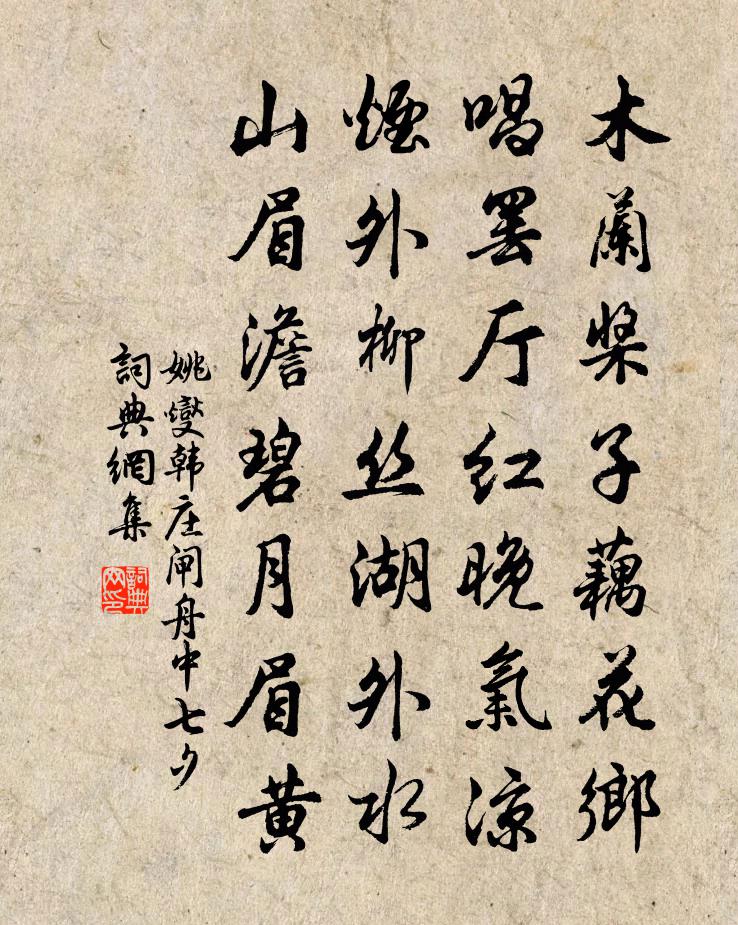 木蘭槳子藕花鄉
唱罢厅红晚氣涼
煙外柳丝湖外水
山眉澹碧月眉黄
姚燮韩庄闸舟中七夕
詞典網集
詞典网印